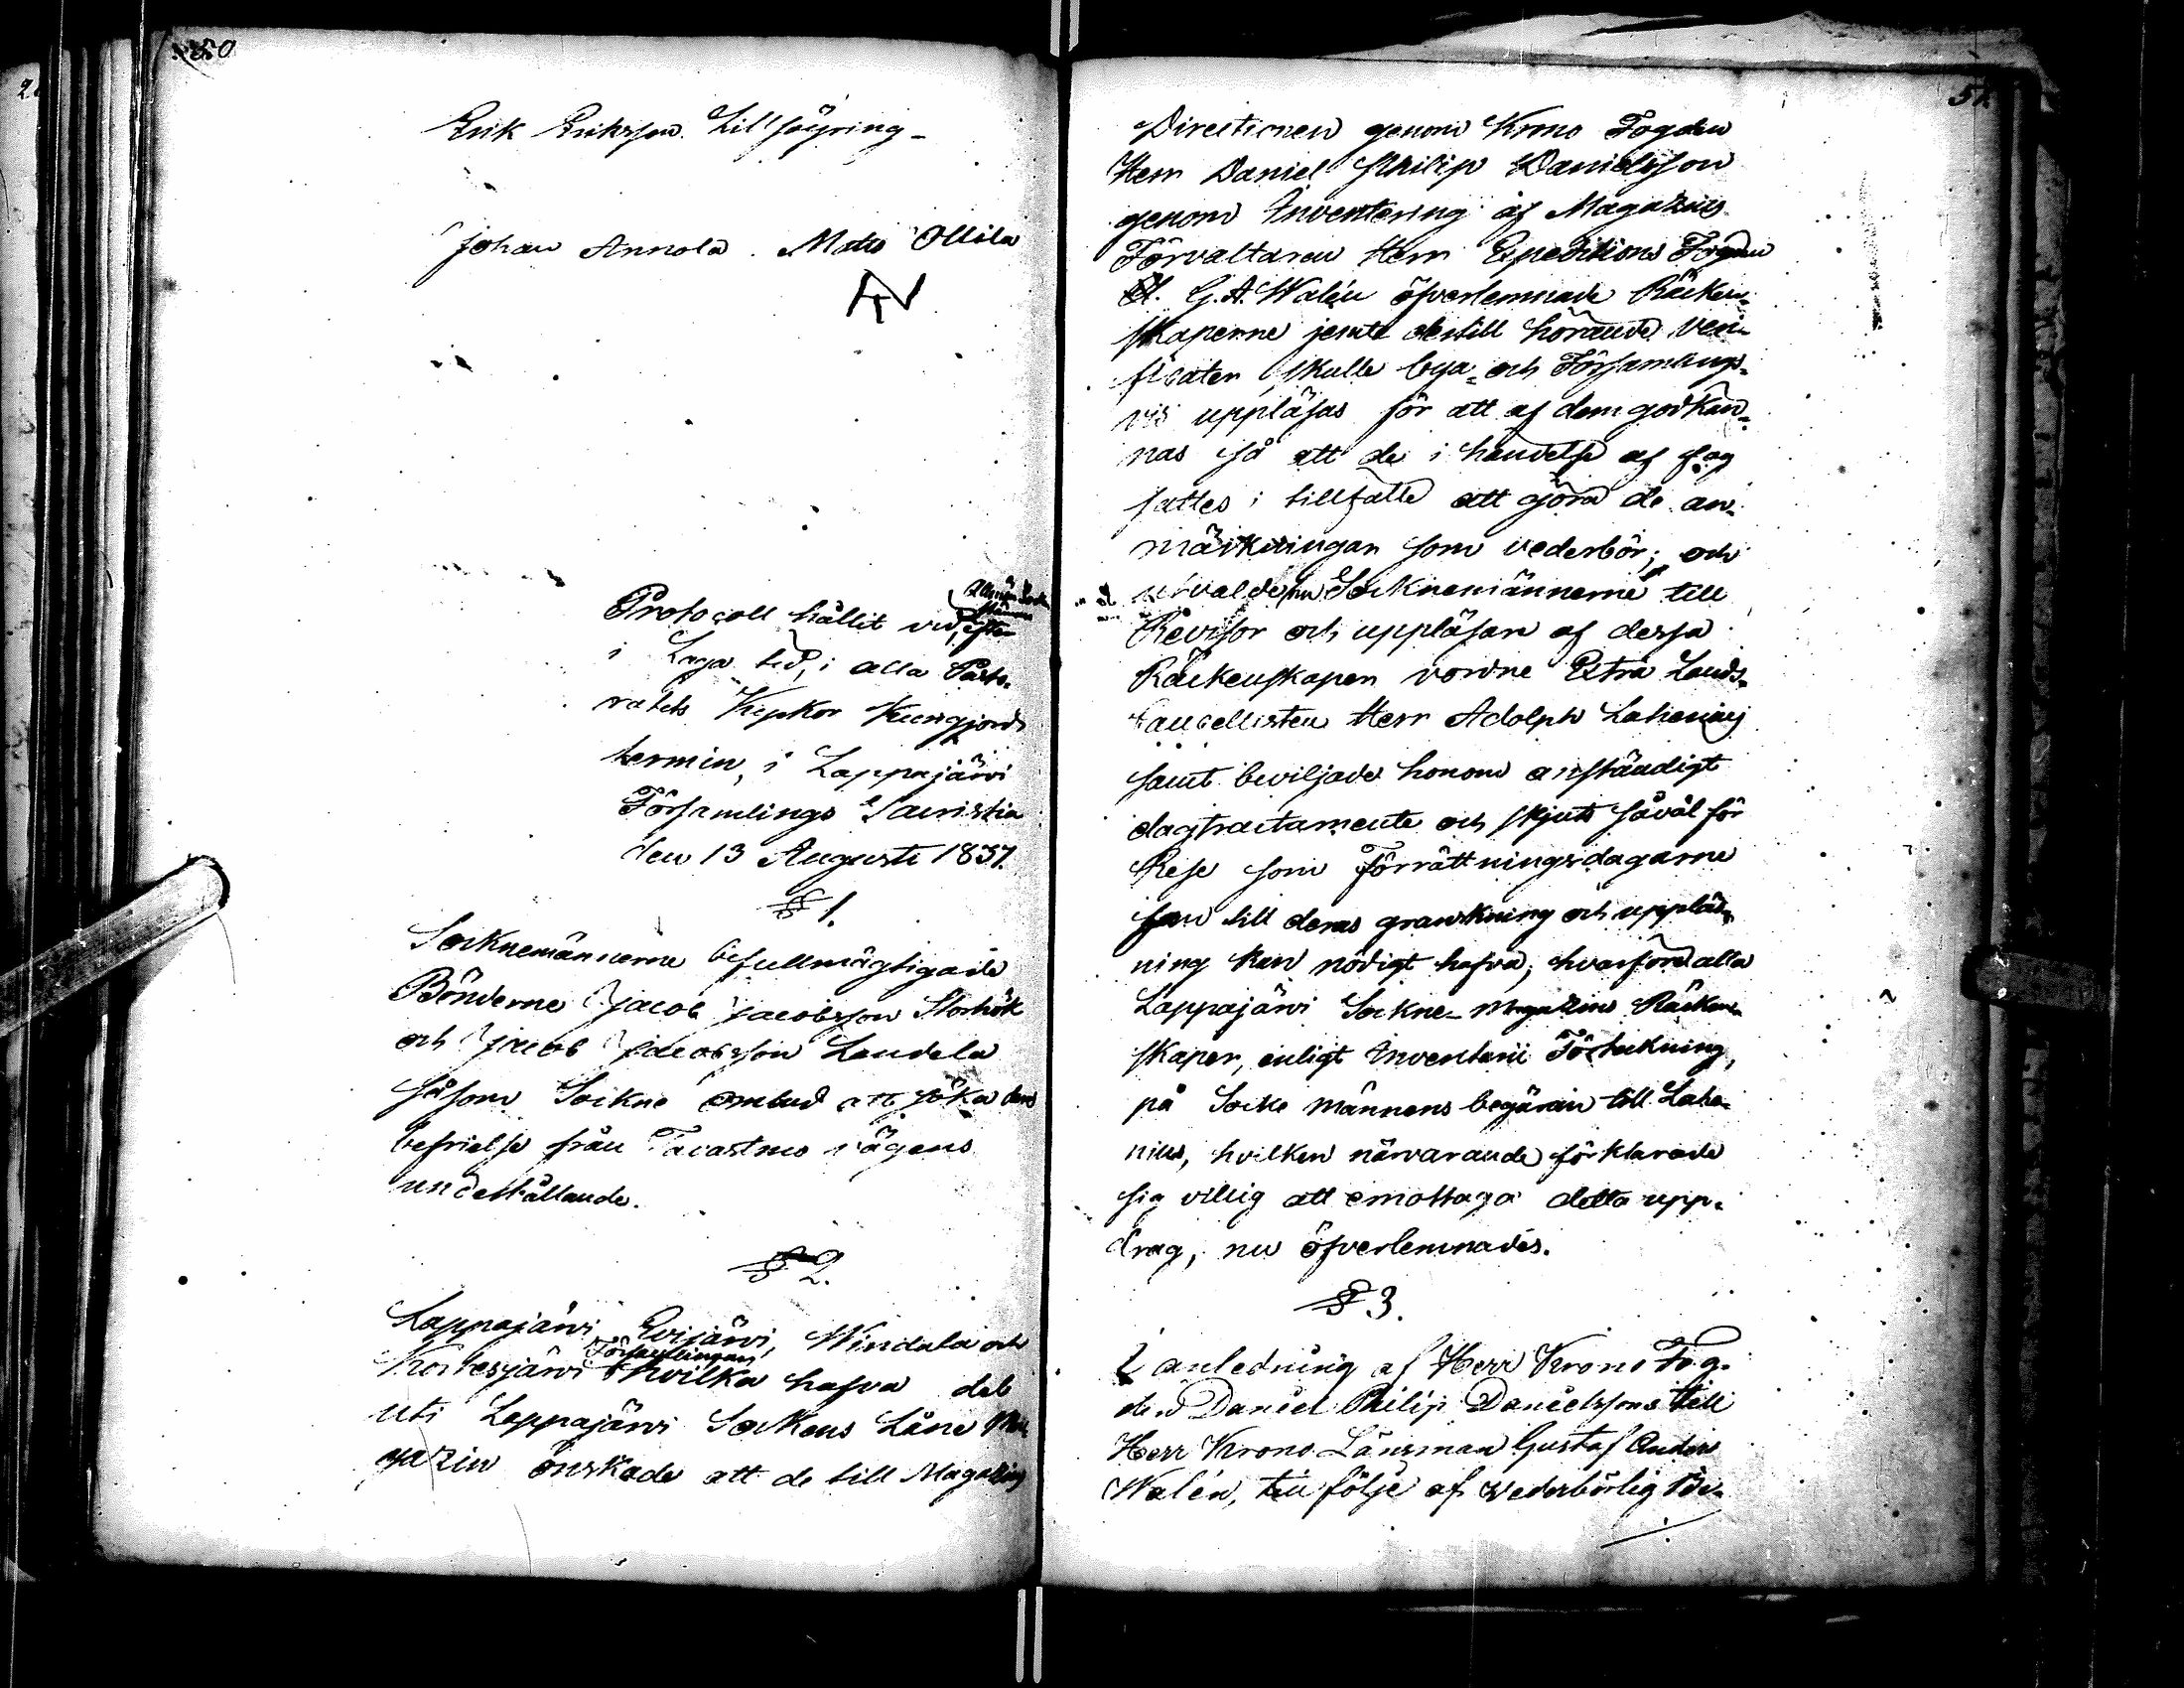 50
Erik Eriksson Lillsöyring-
Johan Annola. Matts Ollila
Allmän Socke
Stämma
Protocoll hållit vid, efter
i Laga tid, i alla Pasto-
ratets Kyrkor Kungjord
termin, i Lappajärvi
Församlings Sacristia
den 13 Augusti 1837.
§ 1.
Socknemännerne befullmägtigade
Bönderne Jacob Jacobsson Storhök
och Jacob Jacobsson Landela
såsom Sockne ombud att söka dess
befrielse från Tavastmo vägens
underhållande.
§ 2.
Lappajärvi, Evijärvi, Windala och
Församlingar
Kortesjärvi hvilka hafva del
uti Lappajärvi Sockens Låne Ma-
gazin önskade att de till Magazins
51.
Directionen genom Krono Fogden
Herr Daniel Philip Danielsson
genom Inventering af Magazins
Förvaltaren Herr Expeditions Fogden
G. A. Walén öfverlemnade Räken-
skaperne jemte dertill hörande veri-
ficater, skulle bya- och Församlings-
vis uppläsas för att af dem godkän-
nas så att de i händelse af
sattes i tillfälle att göra de an-
märkningar som vederbör; och
utvalde nu Socknemännerne till
Revisor och uppläsare af dessa
Räkenskaper vordne Extra Lands-
Cancellisten Herr Adolph Lahenius
samt beviljade honom anständigt
dagtractamente och skjuts såväl för
Rese som Förrättningsdagarne
som till deras granskning och uppläs-
ning kan nödigt hafva; hvarföre alla
Lappajärvi Sockne-Magazins Räken-
skaper, enligt Inventarii Förteckning,
på Socke männens begäran till Lahe-
nius, hvilken närvarande förklarade
sig villig att emottaga detta upp-
drag, nu öfverlemnades.
§ 3.
I anledning af Herr Krono Fog-
den Daniel Philip Danielssons till
Herr Krono Länsman Gustaf Anders
Walén, till följe af vederbörlig Be-